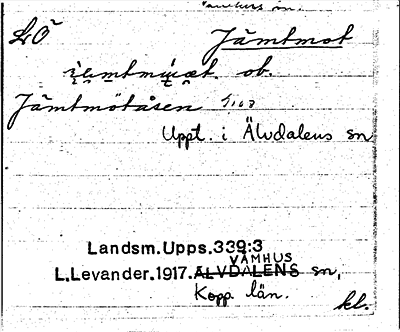 LÖ Jämtmot
ob.
Jämtmötåsen
Uppt. i Älvdalens sn
Landsm.Upps.339:3
VÅMHUS
L.Levander.1917.ÄLVDALENS sn,
Kopp. län.
kl.